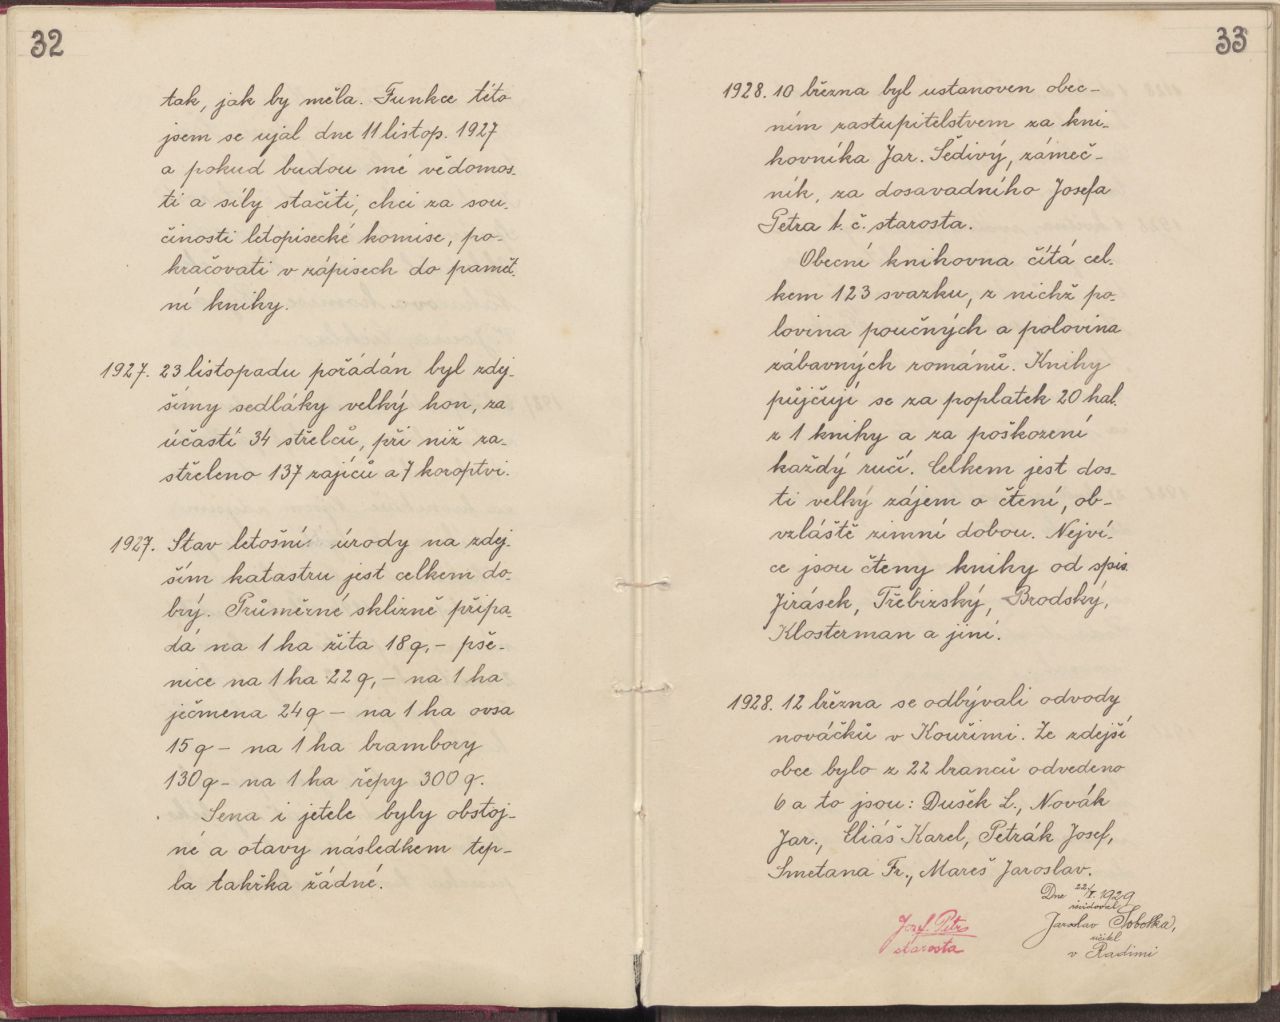 32
tak, jak by měla. Funkce této
jsem se ujal dne 11 listop. 1927
a pokud budou mé vědomos-
ti a síly stačiti, chci za sou-
činosti letopisecké komise, po-
kračovati v zápisech do pamět-
ní knihy.
1927. 23 listopadu pořádán byl zdej-
šímy sedláky velký hon, za
účastí 34 střelců, při niž za-
střeleno 137 zajíců a 7 koroptví.
1927. Stav letošní úrody na zdej-
ším katastru jest celkem do-
brý. Průměrné sklizně připa-
dá na 1 ha žita 18 q, - pše-
nice na 1 ha 22 q, - na 1 ha
ječmena 24 q - na 1 ha ovsa
15 q - na 1 ha brambory
130 q - na 1 ha řepy 300 q.
Sena i jetele byly obstoj-
né a otavy následkem tep-
la takřka žádné.
33
1928. 10 března byl ustanoven obec-
ním zastupitelstvem za kni-
hovníka Jar. Šedivý, zámeč-
ník, za dosavadního Josefa
Petra t. č. starosta.
Obecní knihovna čítá cel-
kem 123 svazku, z nichž po-
lovina poučných a polovina
zábavných románů. Knihy
půjčují se za poplatek 20 hal.
z 1 knihy a za poškození
každý ručí. Celkem jest dos-
ti velký zájem o čtení, ob-
vzláště zimní dobou. Nejví-
ce jsou čteny knihy od spis.
Jirásek, Třebizský, Brodský,
Klosterman a jiní.
1928. 12 března se odbývali odvody
nováčků v Kouřimi. Ze zdejší
obce bylo z 22 branců odvedeno
6 a to jsou: Dušek L., Novák
Jar., Eliáš Karel, Petrák Josef,
Smetana Fr., Mareš Jaroslav.
Dne 22/I. 1929
revidoval
Jaroslav Sobotka,
učitel
v Radimi
Josef Petr
starosta